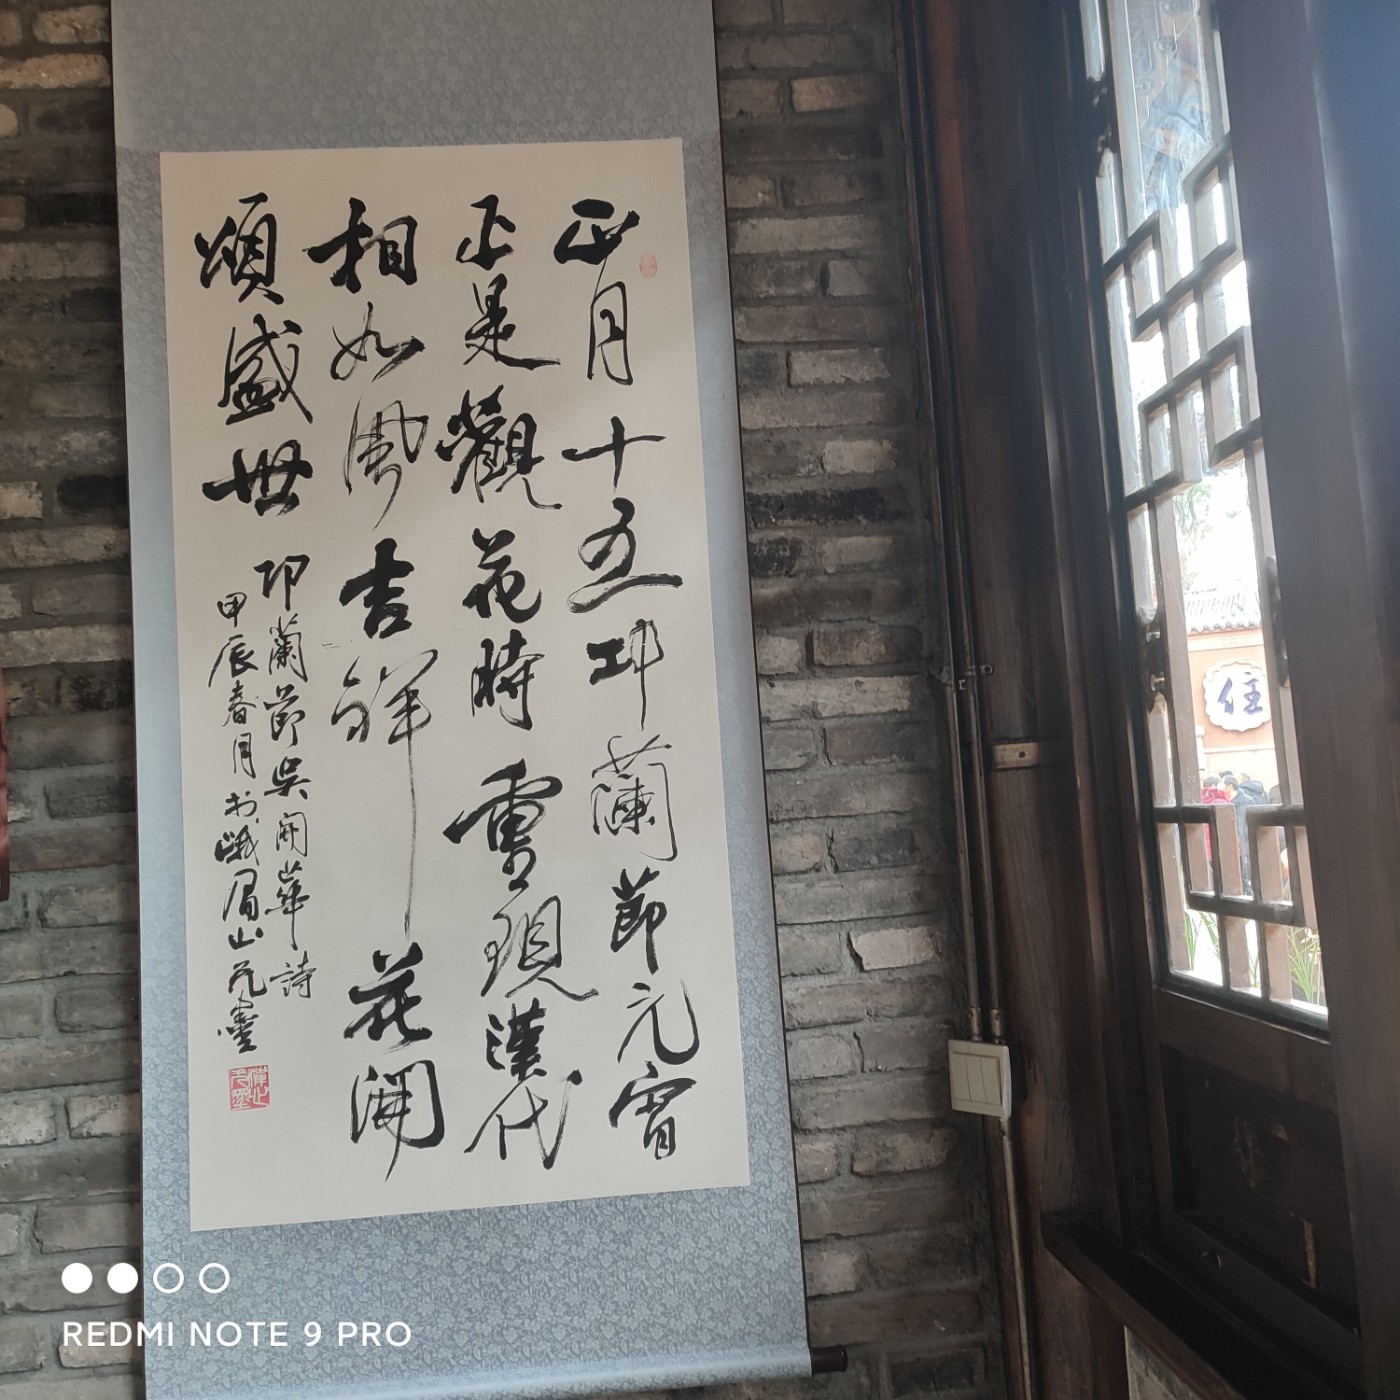 正月十五邛蘭節元宵
正是觀花時重現漢代
相如風吉祥花開
頌盛世
邛蘭節吳開華詩
甲辰春月於峨眉山元靈
住
REDMI NOTE 9 PRO